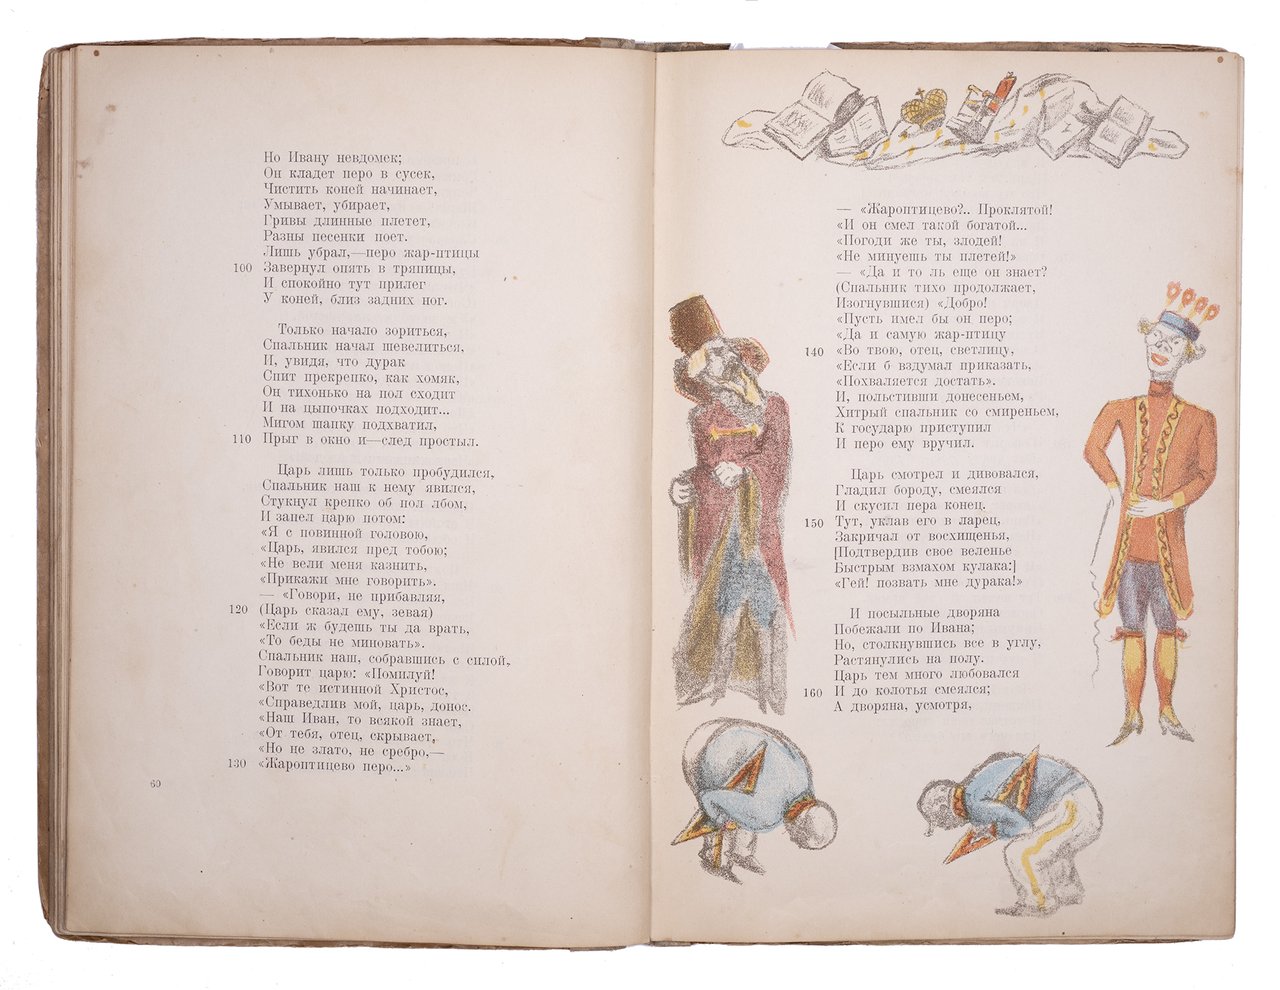 Но Ивану невдомек;
Он кладет перо в сусек,
Чистить коней начинает,
Умывает, убирает,
Гривы длинные плетет,
Разны песенки поет.
Лишь убрал,—перо жар-птицы
100 Завернул опять в тряпицы,
И спокойно тут прилег
У коней, близ задних ног.
Только начало зориться,
Спальник начал шевелиться,
И, увидя, что дурак
Спит прекрепко, как хомяк,
Он тихонько на пол сходит
И на цыпочках подходит...
Мигом шапку подхватил,
110 Прыг в окно и—след простыл.
Царь лишь только пробудился,
Спальник наш к нему явился,
Стукнул крепко об пол лбом,
И запел царю потом:
«Я с повинной головою,
«Царь, явился пред тобою;
«Не вели меня казнить,
«Прикажи мне говорить».
— «Говори, не прибавляя,
120 (Царь сказал ему, зевая)
«Если ж будешь ты да врать,
«То беды не миновать».
Спальник наш, собравшись с силой,
Говорит царю: «Помилуй!
«Вот те истинной Христос,
«Справедлив мой, царь, донос.
«Наш Иван, то всякой знает,
«От тебя, отец, скрывает,
«Но не злато, не сребро,—
130 «Жароптицево перо...»
60
— «Жароптицево?.. Проклятой!
«И он смел такой богатой...
«Погоди же ты, злодей!
«Не минуешь ты плетей!»
— «Да и то ль еще он знает?
(Спальник тихо продолжает,
Изогнувшися) «Добро!
«Пусть имел бы он перо;
«Да и самую жар-птицу
140 «Во твою, отец, светлицу,
«Если б вздумал приказать,
«Похваляется достать».
И, польстивши донесеньем,
Хитрый спальник со смиреньем,
К государю приступил
И перо ему вручил.
Царь смотрел и дивовался,
Гладил бороду, смеялся
И скусил пера конец.
150 Тут, уклав его в ларец,
Закричал от восхищенья,
[Подтвердив свое веленье
Быстрым взмахом кулака:]
«Гей! позвать мне дурака!»
И посыльные дворяна
Побежали по Ивана;
Но, столкнувшись все в углу,
Растянулись на полу.
Царь тем много любовался
160 И до колотья смеялся;
А дворяна, усмотря,